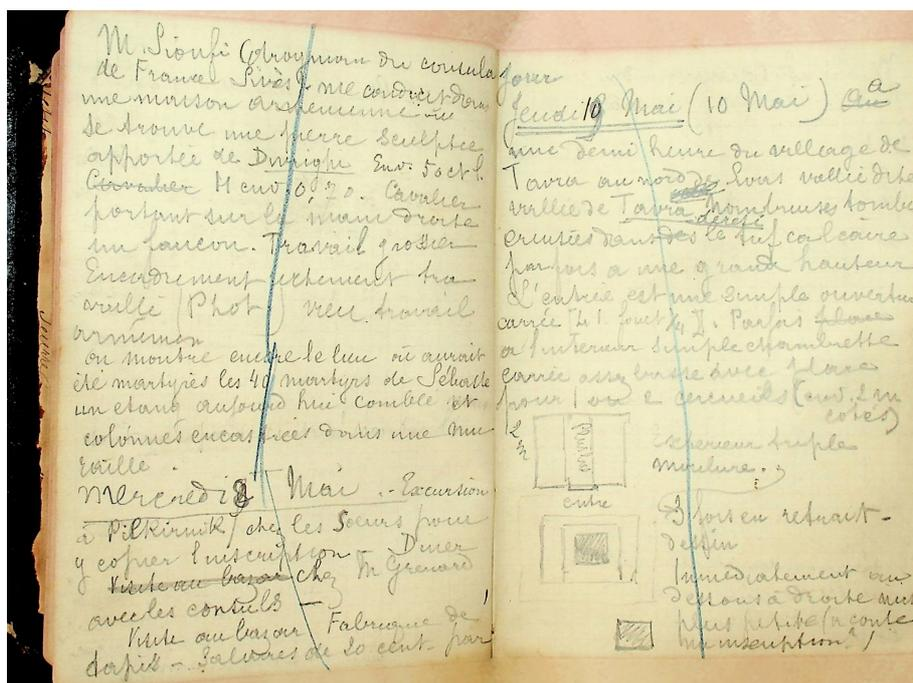 M. Sioufi (drogman du consulat
de France Sivas) me conduit dans
une maison arménienne où
se trouve une pierre sculptée
apportée de Divrighi Env. 50 ct l.
Cavalier H env. 0,70. Cavalier
portant sur la main droite
un faucon. Travail grossier
Encadrement richement tra
vaillé (Phot) vieux travail
arménien
on montre encore le lieu où aurait
été martyrisés les 40 martyrs de Sébaste
un etang aujourd'hui comblé et
colonnes encastrées dans une mu
raille.
Mercredi 8 Mai. - Excursion
à Pirkirnik / chez les Soeurs pour
y copier l'inscription Diner
Visite au bazar chez M Grenard
avec les consuls —
Visite au bazar Fabrique de
tapis - Salaires de 20 cent. par
jour
Jeudi 10 Mai (10 Mai) a
une demi heure du village de
Tavra au nord de Sivas vallée dite
vallée de Tavra nombreuses tombes
creusées dans le tuf calcaire
parfois a une grande hauteur
L'entrée est une simple ouverture
carrée. Parfois place
a l'interieur simple chambrette
carrée assez basse avec place
pour 1 ou 2 cercueils (env. 2 m
cotés)
2 m
Exterieur triple
moulure.
entrée
3 fois en retrait -
dessin
Immédiatement au
dessous à droite
plus petite
inscription?)